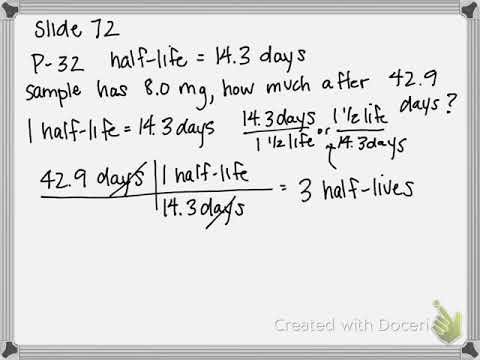 Slide 72
P-32 half-life = 14.3 days
sample has 8.0 mg, how much after 42.9 days?
1 half-life = 14.3 days 14.3 days / 1 ½ life or 1 ½ life / 14.3 days
42.9 days | 1 half-life / 14.3 days = 3 half-lives
Created with Doceri